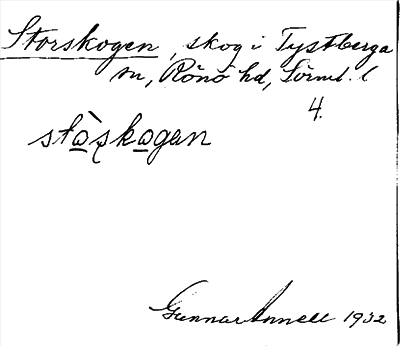 Storskogen, skog i Tystberga
sn, Rönö hd, Sörml. l
4.
stò̱ʂko̱gan
Gunnar Annell 1932